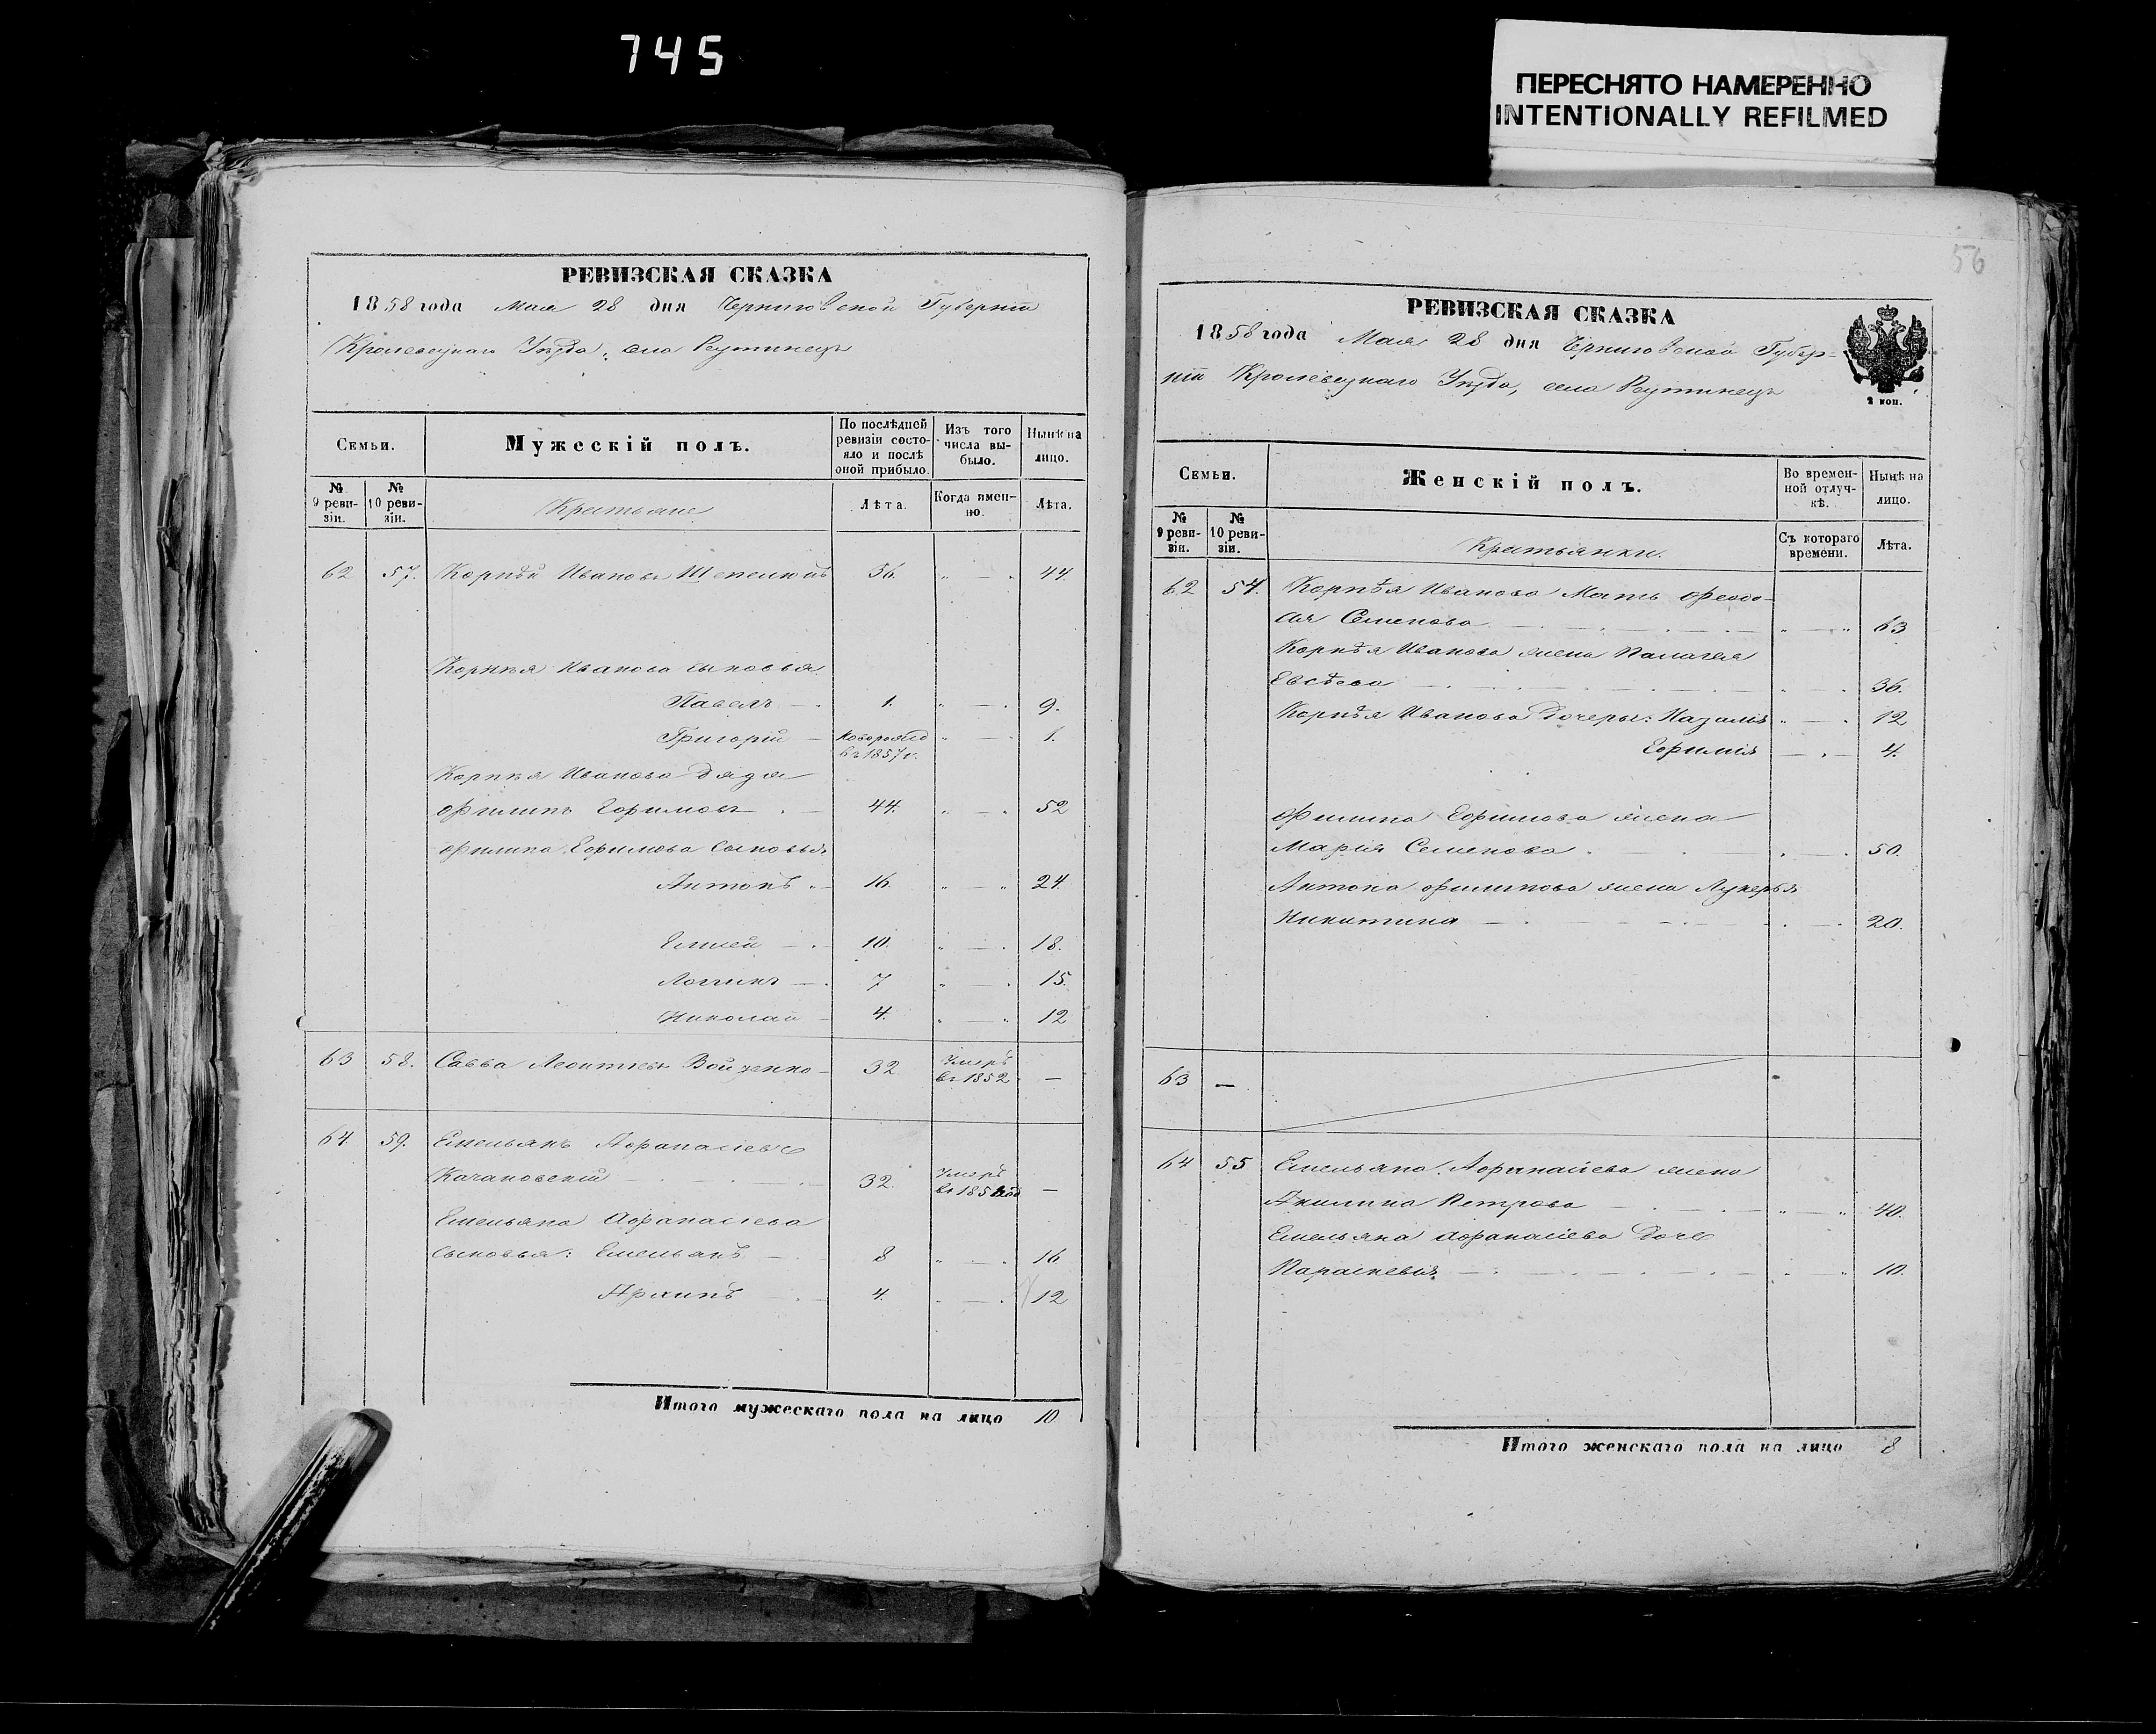 745
ПЕРЕСНЯТО НАМЕРЕННО
INTENTIONALLY REFILMED
РЕВИЗСКАЯ СКАЗКА
1858 года Мая 28 дня Черниговской Губерніи
Кролевецкаго Уѣзда, села Реутинецъ
Семьи.
Мужескій полъ.
По послѣдней ревизіи состояло и послѣ оной прибыло.
Изъ того числа выбыло.
Нынѣ на лицо.
№ 9 ревизіи.
№ 10 ревизіи.
Крестьяне
Лѣта.
Когда именно.
Лѣта.
62 57. Корнѣй Ивановъ 36. " — " 44.
Корнѣя Иванова сыновья
Павелъ — 1. " — " 9.
Григорій — новорожд " — " 1.
въ 1857 г.
Корнѣя Иванова дядя
Филипъ Ефимовъ — 44. " — " 52
Филипа Ефимова сыновья
Антонъ " — 16. " — " 24.
Елисей — 10. " — " 18.
Логгинъ — 7 " — " 15.
Николай — 4. " — " 12
63 58. Савва Леонтіевъ Войтенко — 32. Умеръ —
въ 1852
64. 59. Емельянъ Афанасіевъ
Качановскій — 32. Умеръ —
Емельяна Афанасіева
сыновья: Емельянъ — 8 " — " 16
Архипъ — 4. " — " 12
Итого мужескаго пола на лицо 10
56
РЕВИЗСКАЯ СКАЗКА
1858 года Мая 28 дня Черниговской Губер-
ніи Кролевецкаго Уѣзда, села Реутинецъ
2 коп.
Семьи.
Женскій полъ.
Во временной отлучкѣ.
Нынѣ на лицо.
№ 9 ревизіи.
№ 10 ревизіи.
Крестьянки.
Съ котораго времени.
Лѣта.
62 54. Корнѣя Иванова Мать Феодо-
Семенова — " — " 63
Корнѣя Иванова жена Палагея
Евсѣева — " — " 36.
Корнѣя Иванова дочеры: Наталія " — " 12
Ефимія — " — 4.
Филипа Ефимова жена
Марія Семенова " — " 50.
Антона Филипова жена Лукерья
Никитина — " — " 20.
63 —
64 55 Емельяна Афанасіева жена
Акилина Петрова — " — " 40.
Емельяна Афанасіева дочь
Параскевія — " — " 10.
Итого женскаго пола на лицо 8